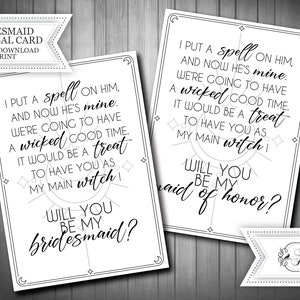 ESMAID
AL CARD
DOWNLOAD
RINT
I PUT A spell ON HIM,
AND NOW HE'S mine.
WE'RE GOING TO HAVE
A wicked GOOD TIME.
IT WOULD BE A treat
TO HAVE YOU AS
MY MAIN witch!
WILL YOU
BE MY
bridesmaid?
I PUT A spell ON HIM,
AND NOW HE'S mine.
WE'RE GOING TO HAVE
A wicked GOOD TIME.
IT WOULD BE A treat
TO HAVE YOU AS
MY MAIN witch!
WILL YOU
BE MY
maid of honor?